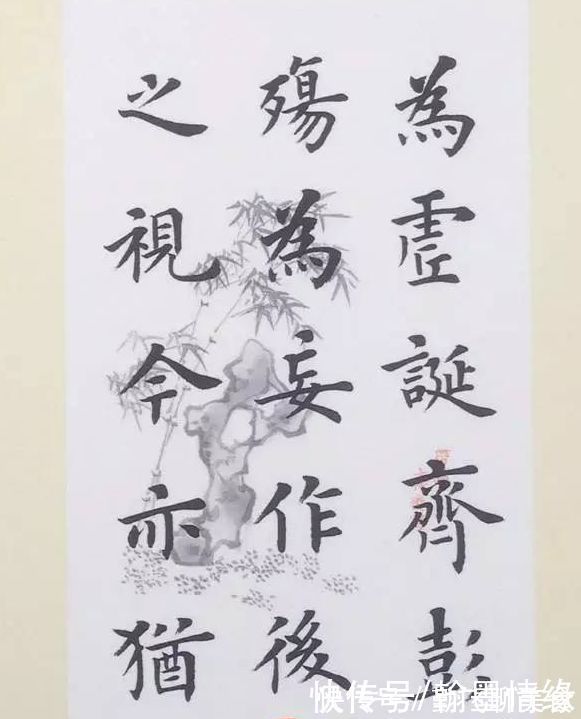 為虛誕齊彭
殤為妄作後
之視今亦猶
快传号/翰墨情缘